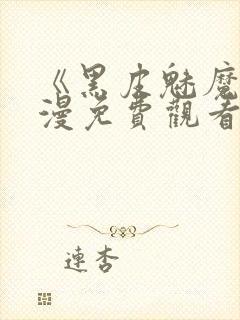 《黑皮魅魔
漫免費觀看
連杏